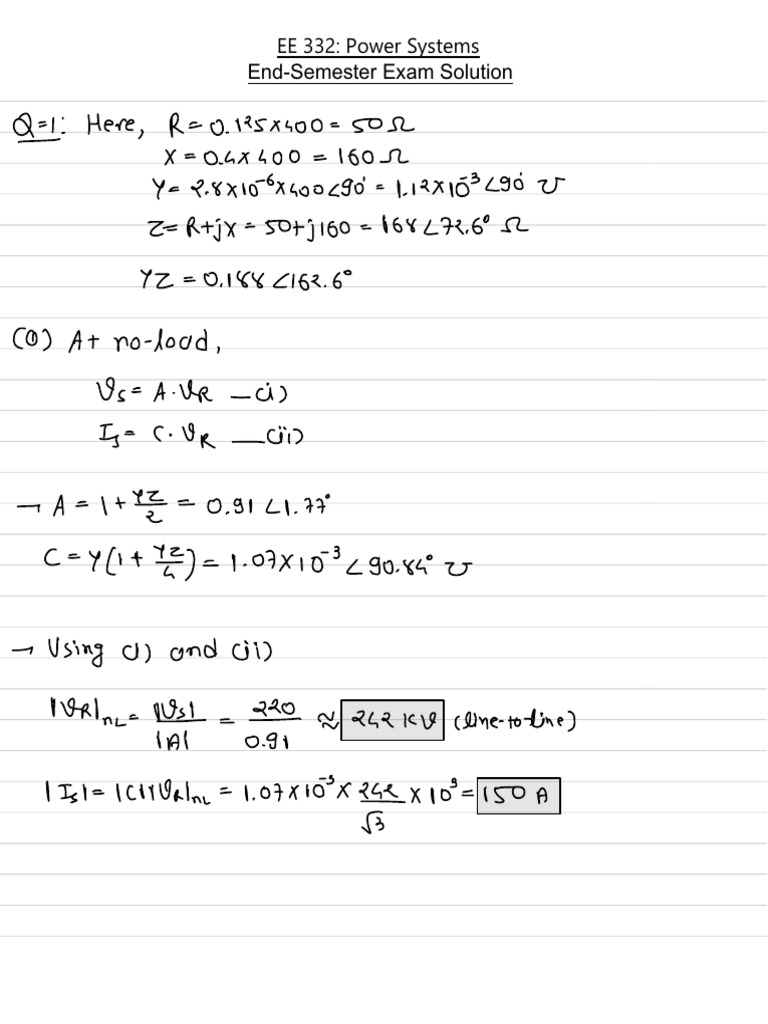 EE 332: Power Systems
End-Semester Exam Solution
Q=1: Here, R = 0.125×400 = 50Ω
X = 0.4×400 = 160Ω
Y = 2.8×10⁻⁶×400∠90° = 1.12×10⁻³∠90° ℧
Z = R+jX = 50+j160 = 168∠72.6° Ω
YZ = 0.188 ∠162.6°
(a) At no-load,
Vs = A.VR —(i)
Is = C.VR —(ii)
→ A = 1 + YZ/2 = 0.91 ∠1.77°
C = Y(1 + YZ/4) = 1.07×10⁻³ ∠90.84° ℧
→ Using (i) and (ii)
|VR|nL = |Vs|/|A| = 220/0.91 ≈ 242 KV (line-to-line)
|Is| = |C||VR|nL = 1.07×10⁻³ × 242/√3 × 10³ = 150 A